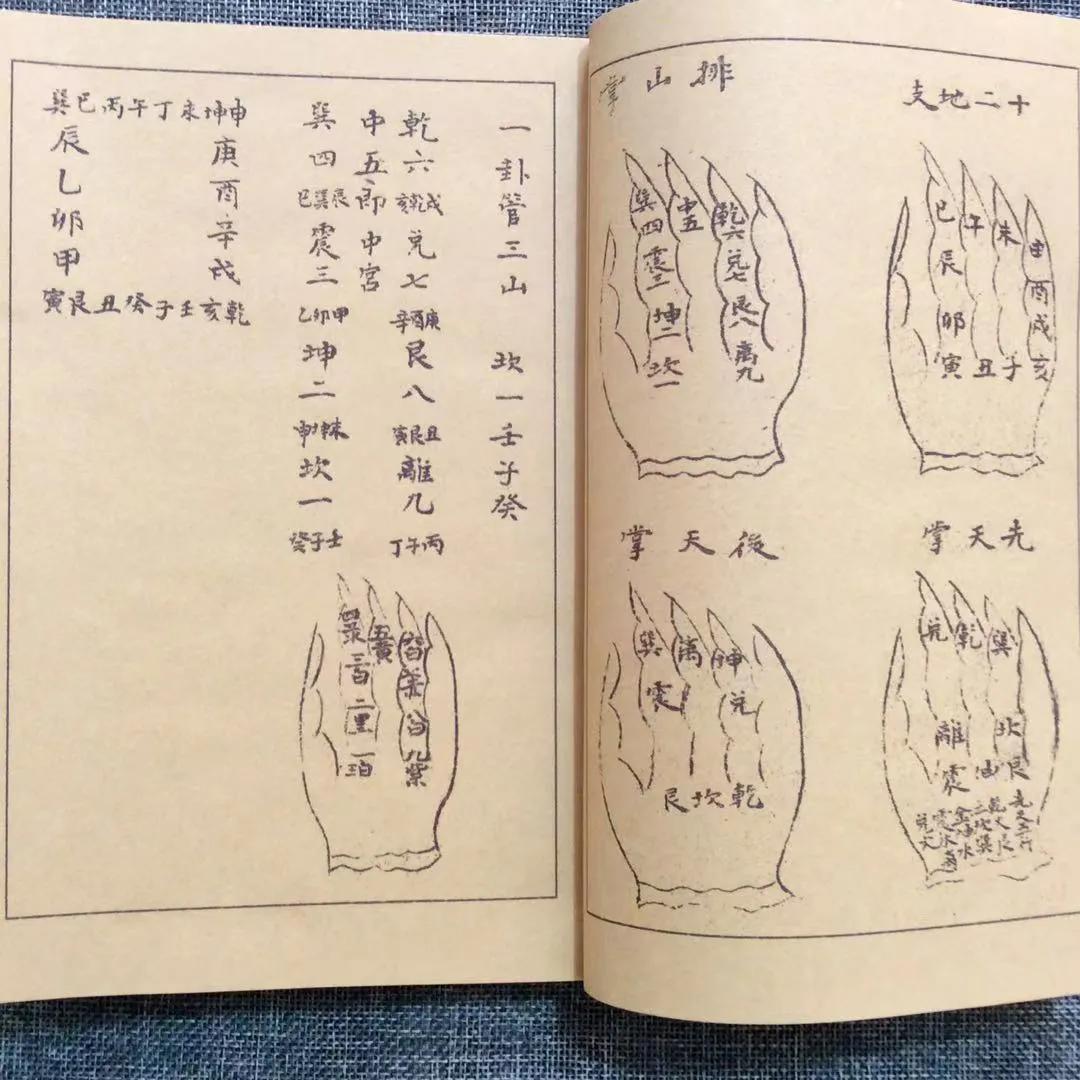 十二地支
巳午未申
辰酉
卯戌
寅丑子亥
排山掌
巽四
震三
坤二
坎一
中五
乾六
兌七
艮八
離九
先天掌
兌乾巽
離坎
震坤艮
先天五行
後天掌
巽離坤
震兌
艮坎乾
一卦管三山 坎一壬子癸
乾六戌乾亥兌七庚酉辛艮八丑艮寅離九丙午丁
中五即中宮
巽四辰巽巳震三甲卯乙坤二未坤申坎一壬子癸
五黄
二黑
九紫
巽巳丙午丁未坤申
庚酉辛戌
辰乙卯甲
寅艮丑癸子壬亥乾